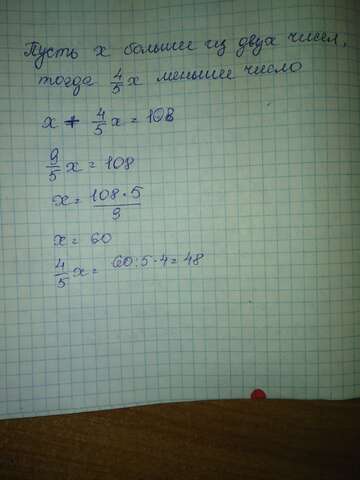 Пусть x большее из двух чисел,
тогда 4/5 x меньшее число
x + 4/5 x = 108
9/5 x = 108
x = 108·5/9
x = 60
4/5 x = 60:5·4 = 48